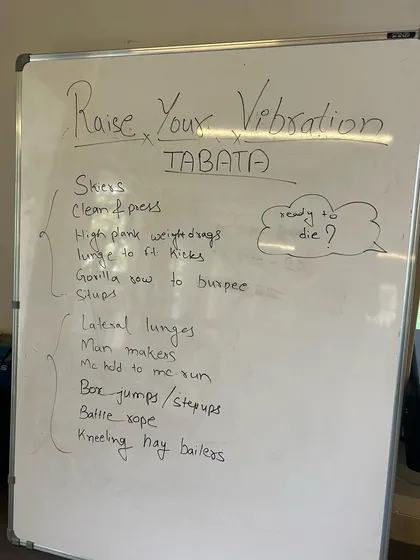 Raise Your Vibration
TABATA
Skiers
Clean & press
High plank weight drags
lunge to ft. kicks
Gorilla row to burpee
Situps
ready to
die?
Lateral lunges
Man makers
Mc hold to mc run
Box jumps/stepups
Battle rope
Kneeling hay bailers